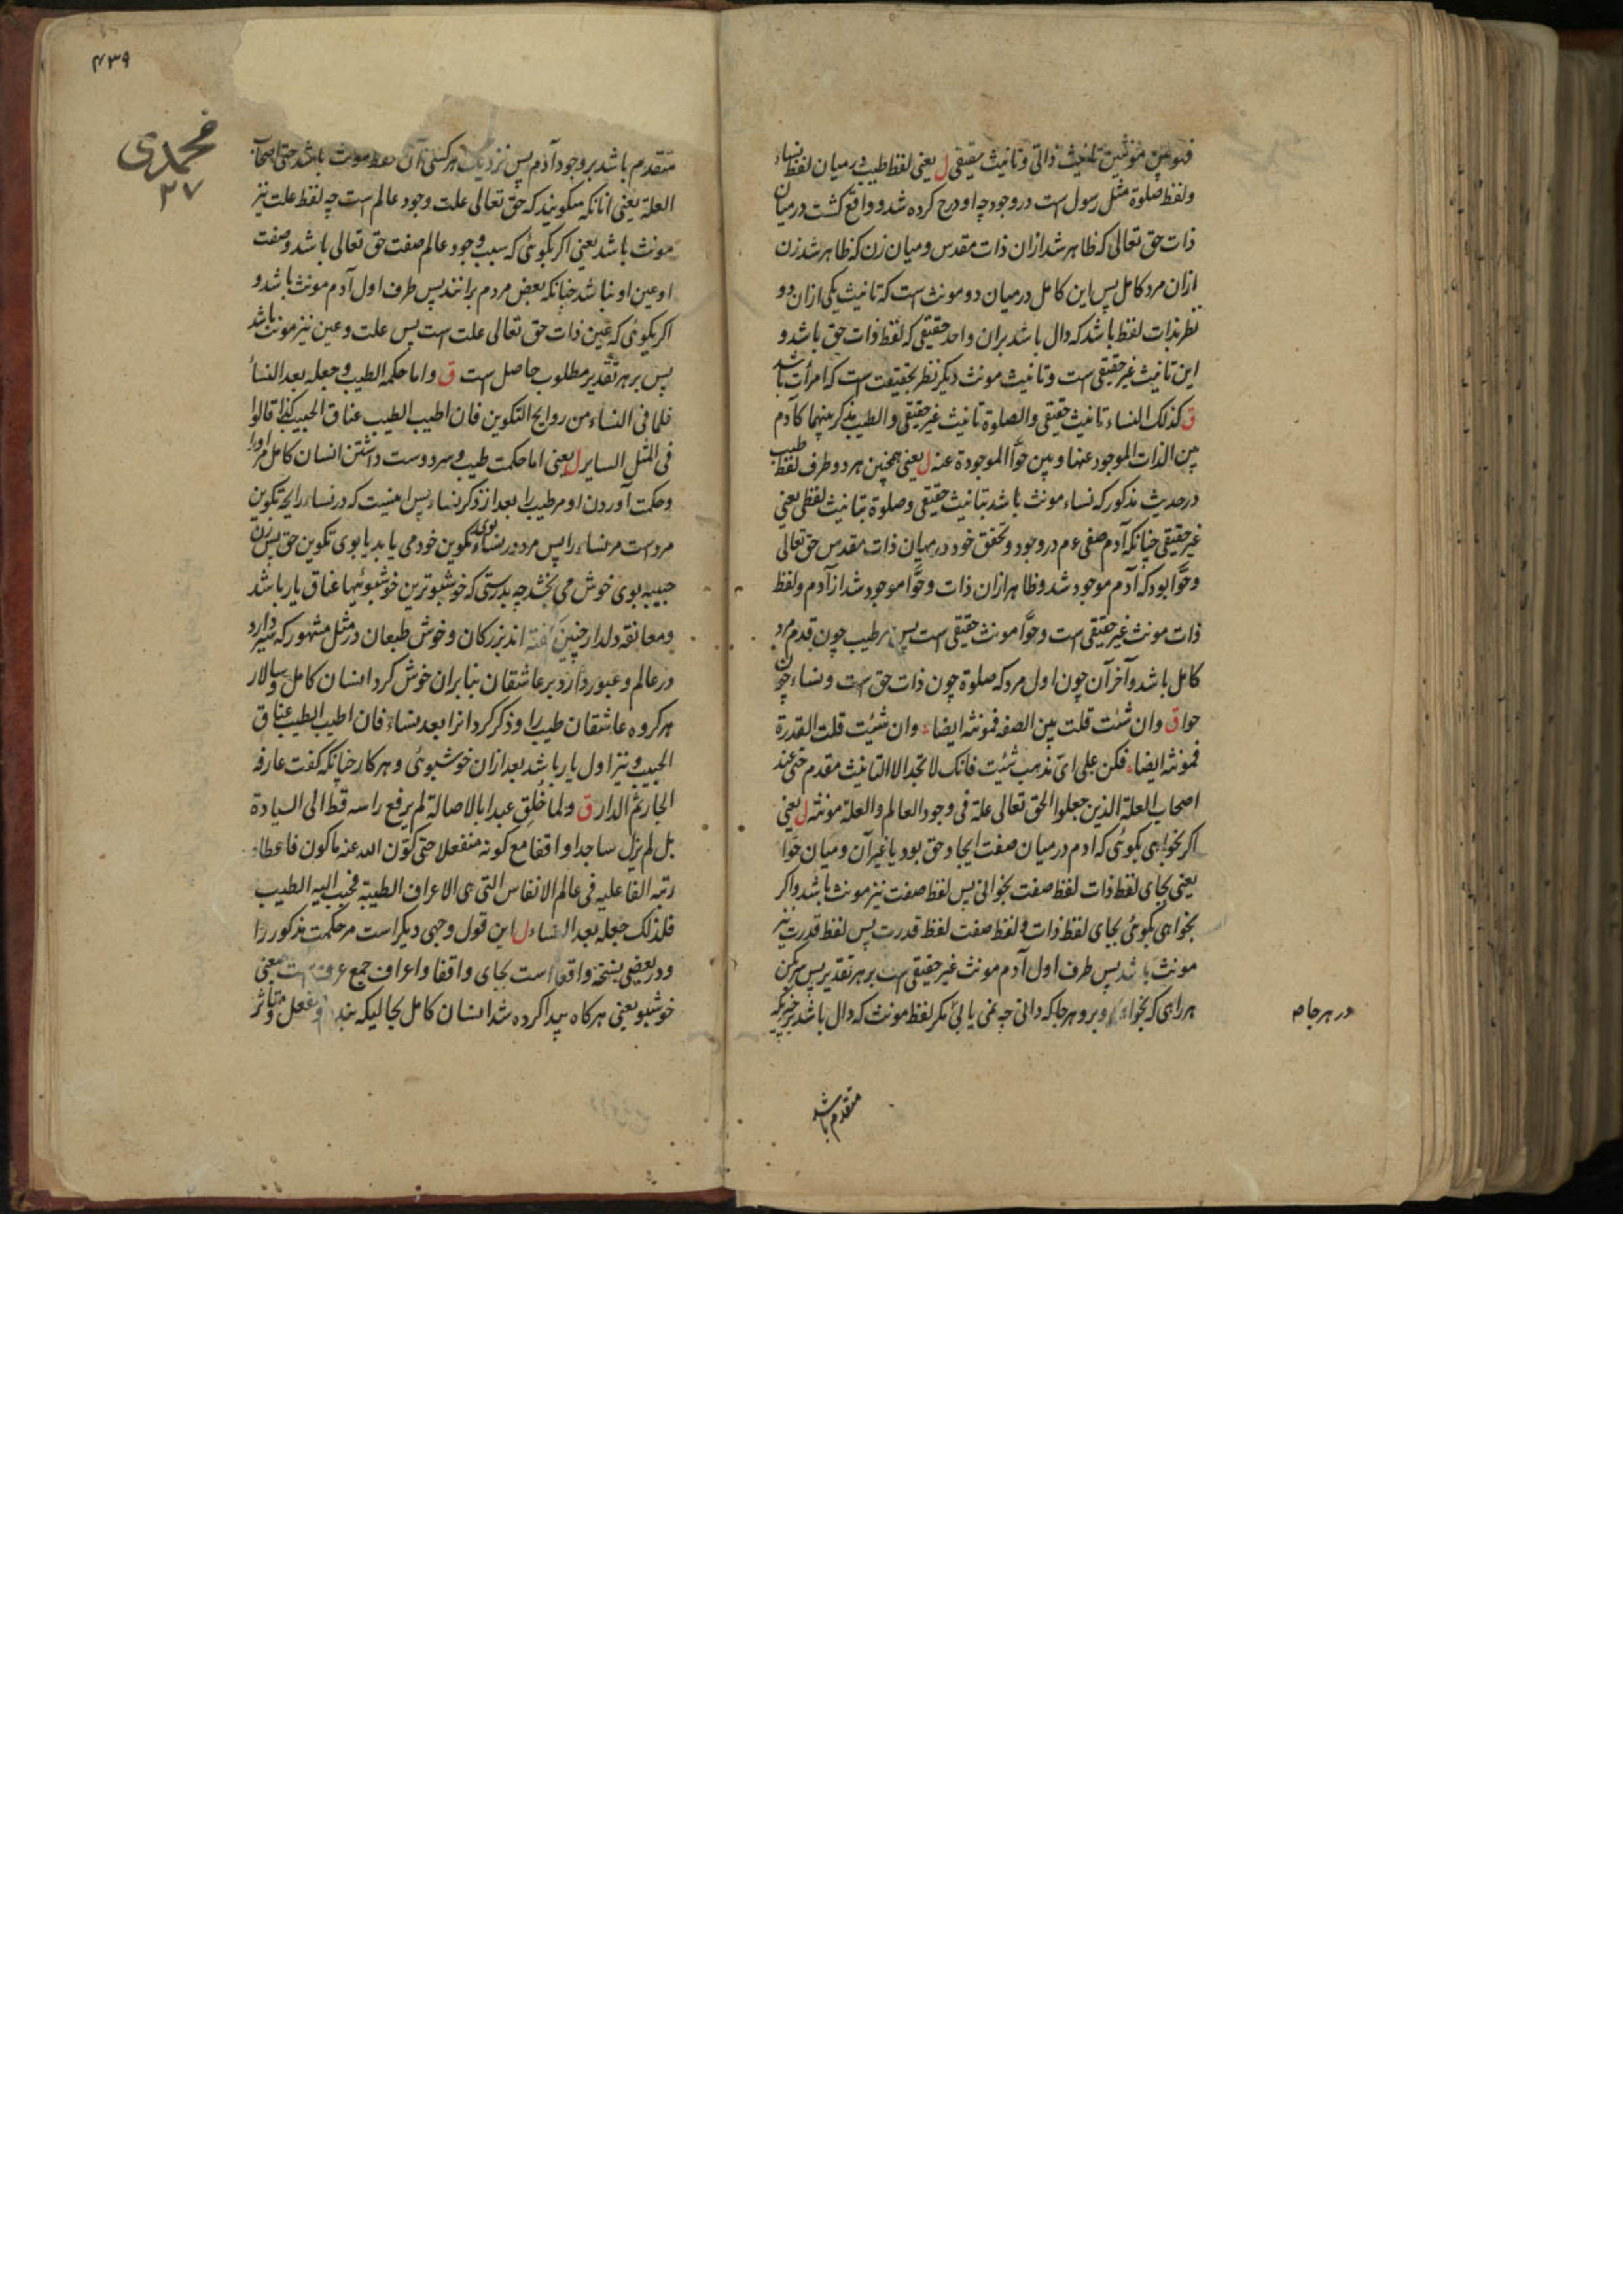 فهو بین مونثین تانیث ذاتی و تانیث حقیقی ل یعنی لفظ طیب در میان لفظ نساء
ولفظ صلوة مثل رسول است در وجود چه او درج کرده شد و واقع گشت در میان
ذات حق تعالی که ظاهر شد ازان ذات مقدس و میان زن که ظاهر شد زن
ازان مرد کامل پس این کامل در میان دو مونث است که تانیث یکی ازان دو
نظر بذات لفظ باشد که دال باشد بران واحد حقیقی که لفظ ذات حق باشد و
این تانیث غیر حقیقی است و تانیث مونث دیکر نظر بحقیقت است که امرأت باشد
ق کذلک النساء تانیث حقیقی والصلوة تانیث غیر حقیقی والطیب مذکر بینهما کآدم
بین الذات الموجود عنها و بین حوّا الموجودة عنه ل یعنی همچنین هر دو طرف لفظ طیب
در حدیث مذکور که نساء مونث باشد بتانیث حقیقی و صلوة بتانیث لفظی یعنی
غیر حقیقی چنانکه آدم صفی ءم در وجود و تحقق خود در میان ذات مقدس حق تعالی
و حوّا بود که آدم موجود شد و ظاهر ازان ذات و حوّا موجود شد از آدم و لفظ
ذات مونث غیر حقیقی است و حوّا مونث حقیقی است پس مر طیب چون قدم مرد
کامل باشد و آخر آن چون اول مرد که صلوة چون ذات حق است و نساء چون
حوا ق وان شئت قلت بین الصفه فمونثه ایضاء وان شئیت قلت القدرة
فمونثه ایضاء فکن علی ای مذهب شئیت فانک لا تجد الا التانیث مقدم حتی عند
اصحاب العلة الذین جعلوا الحق تعالی علة فی وجود العالم والعلة مونثه ل یعنی
اکر بخواهی بکوئی که ادم در میان صفت ایجاد حق بود یا غیر آن و میان حوّا
یعنی بجای لفظ ذات لفظ صفت بخوانی پس لفظ صفت نیز مونث باشد و اکر
بخواهی بکوئی بجای لفظ ذات و لفظ صفت لفظ قدرت پس لفظ قدرت نیز
مونث باشد پس طرف اول آدم مونث غیر حقیقی است بر هر تقدیر پس سیر کن
هر راهی که بخواهی و برو هر جا که دانی چه نمی یابی مکر لفظ مونث که دال باشد بر چیزیکه
در هر جا صح
متقدم باشد
۴۳۹
محمدی
۲۷
متقدم باشد بر وجود آدم پس نزدیک هر کسی آن لفظ مونث باشد حتی اصحاب
العلة یعنی انانکه میکویند که حق تعالی علت وجود عالم است چه لفظ علت نیز
مونث باشد یعنی اکر بکوئی که سبب وجود عالم صفت حق تعالی باشد و صفت
او عین او نباشد چنانکه بعض مردم برانند پس طرف اول آدم مونث باشد و
اکر بکوئی که عین ذات حق تعالی علت است پس علت و عین نیز مونث باشد
پس بر هر تقدیر مطلوب حاصل است ق واما حکمه الطیب و جعله بعد النساء
فلما فی النساء من روایح التکوین فان اطیب الطیب عناق الحبیب کذا قالوا
فی المثل السایر ل یعنی اما حکمت طیب و سر دوست داشتن انسان کامل مر اورا
و حکمت آوردن او مر طیب را بعد از ذکر نساء پس اینست که در نساء رایحه تکوین
مرد است مر نساء را پس مرد در نساء بوی تکوین خود می یابد یا بوی تکوین حق پس زن
حبیبه بوی خوش می بخشد چه بدرستی که خوشبوترین خوشبوئیها عناق یار باشد
و معانقه دلدار چنین گفته اند بزرکان و خوش طبعان در مثل مشهور که سیر دارد
در عالم و عبور دارد بر عاشقان بنابران خوش کرد انسان کامل و سالار
هر کروه عاشقان طیب را و ذکر کرد انرا بعد نساء فان اطیب الطیب عناق
الحبیب و نیز اول یار باشد بعد ازان خوشبوئی و هر کار چنانکه کفت عارفه
الجار ثم الدار ق ولما خُلِق عبدا بالاصالة لم یرفع راسه قط الی السیادة
بل لم یزل ساجدا واقفا مع کونه منفعلا حتی کوّن الله عنه ما کون فاعطاه
رتبه الفاعلیه فی عالم الانفاس التی هی الاعراف الطیبة فحبب الیه الطیب
فلذلک جعله بعد النساء ل این قول وجهی دیکر است مر حکمت مذکور را
و در بعضی نسخة واقعا است بجای واقفا و اعراف جمع عرف است یعنی
خوشبو یعنی هرکاه پیدا کرده شد انسان کامل بحالیکه بنده و منفعل و متاثر